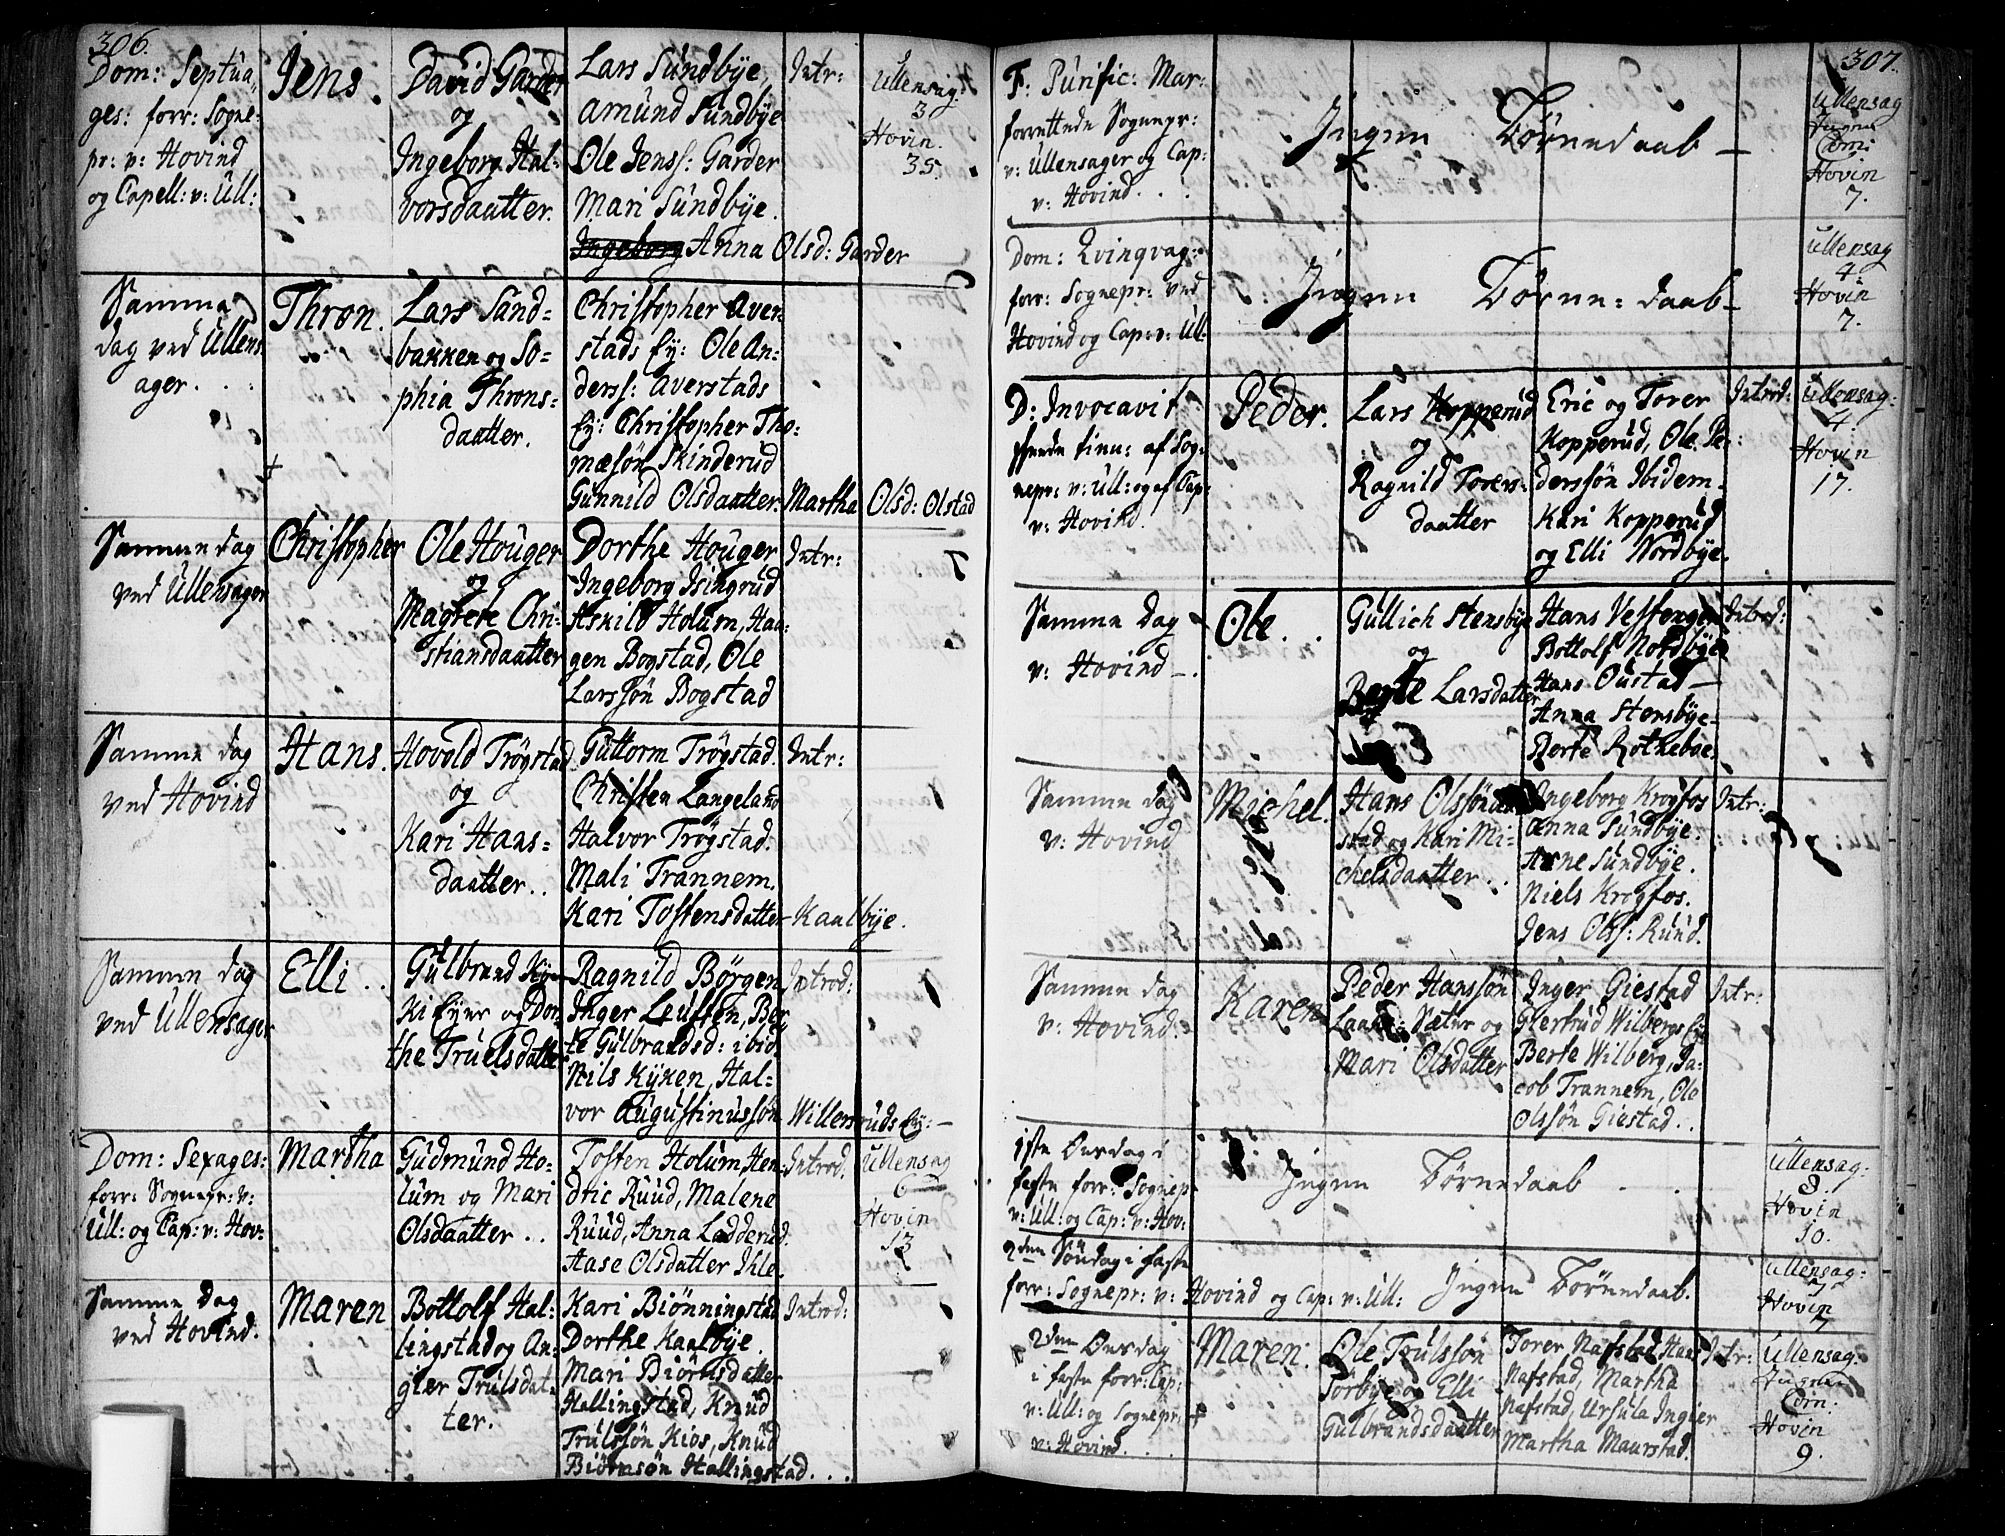 306.
Dom: Septua„
ges: forr: Sogne-
pr: v: Hovind
og Capell: v: Ull:
Jens.
David Garder
og
Ingeborg Hal-
vorsdaatter.
Lars Sundbÿe,
Amund Sundbÿe
Ole Jenss: Garder
Mari Sundbÿe.
Ingeborg Anna Olsd: Garder
Intr:
Ullensag:
3
Hovin.
35.
Samme
dag ved Ullens
ager.
Thron.
Lars Sand-
bakken og So-
phia Throns-
daatter.
Christopher Aver-
stads Eÿ: Ole An-
derss: Averstads
Eÿ: Christopher Tho-
mæsøn Skinderud
Gunnild Olsdaatter. Martha Olsd: Olstad
Samme dag
ved Ullensager
Christopher
Ole Houger
og
Magrete Chri-
stiansdaatter
Dorthe Houger
Ingeborg Isingrud
Askild Holum, Haa-
gen Bogstad, Ole
Larssøn Bogstad
Intr:
Samme dag
ved Hovind
Hans.
Hovold Trøgstad
og
Kari Hans-
daatter.
Guttorm Trøgstad.
Christen Langeland
Halvor Trøgstad.
Mali Trannem.
Kari Tostensdatter Kaalbÿe.
Intr:
Samme dag
ved Ullensager
Elli
Gulbrand Kÿ-
ki Eÿer og Dor-
the Truelsdatter
Ragnild Børgen
Inger Leusten, Ber
te Gulbrandsd: ibid.
Nils Kÿken, Hal-
vor Augustinussøn Willersruds Eÿ:
Introd:
Dom: Sexages:
forr: Sognepr: v:
Ull: og Cap: v: Hov:
Martha
Gudmund Ho-
lum og Mari
Olsdaatter
Tosten Holum, Hen-
dric Ruud, Malene
Ruud, Anna Ladderud.
Aase Olsdatter Ihle.
Introd:
Ullensag
6
Hovin
13
Samme dag
ved Hovind.
Maren
Bottolf Hal-
lingstad og An-
gier Trulsdat-
ter.
Kari Biønningstad
Dorthe Kaalbÿe.
Mari Biørnsdatter
Hallingstad, Knud
Trulssøn Kios, Knud
Biørnsøn Hallingstad
Introd:
307.
F: Purific: Mar:
forrettede Sognepr:
v: Ullensager og Cap:
v: Hovind
Ingen Børnedaab
Ullensag
Ingen
Com:
Hovin
7.
Dom: Qvinqvag:
forr: Sognepr: ved
Hovind og Cap: v: Ull:
Ingen Børne-daab
Ullensag
4
Hovin
7.
D: Invocavit
af Sog-
nepr: v: Ull: og af Cap:
v: Hovind.
Peder.
Lars Kopperud
og
Ragnild Torers-
daatter
Eric og Torer
Kopperud, Ole Pe-
derssøn Ibidem.
Kari Kopperud
og Elli Nordbÿe.
Introd:
Ullensag:
4.
Hovin
17.
Samme dag
v: Hovind
Ole
Gullich Stensbÿe
og
Berte Larsdatter
Hans Vestengen
Bottolf Nordbÿe
Hans Oustad
Anna Stensbÿe
Berte Rotneboe.
Introd:
Samme dag
v: Hovind
Michel.
Hans Olssøn
stad og Kari Mi-
chelsdaatter
Ingeborg Krogfos
Anna Sundbÿe.
Arne Sundbÿe.
Niels Krogfos.
Jens Olss: Ruud.
Intr:
Samme dag
v: Hovind.
Karen
Peder Hanssøn
Sæter og
Mari Olsdatter
Inger Giestad
Giertrud Wilbergs Eÿ
Berte Wilberg, Ja-
cob Trannem, Ole
Olssøn Giestad
Intr:
1ste Onsdag i
faste forr: Sognepr
v: Ull: og Cap: v: Hov:
Ingen Børnedaab
Ullensag:
8.
Hovin
10.
2den Søndag i faste
forr: Sognepr: v: Hovind og Cap: v: Ull: Ingen Børnedaab.
Ullensag:
7
Hovin
7
2den Onsdag
i faste forr: Cap:
v: Ull: og Sognepr:
v: Hovind.
Maren.
Ole Trulssøn
Torbÿe og Elli
Gulbrandsdaatter
Torer Nafstad, Hans
Nafstad, Martha
Nafstad, Ursula Ingier
Martha Maurstad.
Intr:
Ullensag:
Ingen
Com:
Hovin
9.